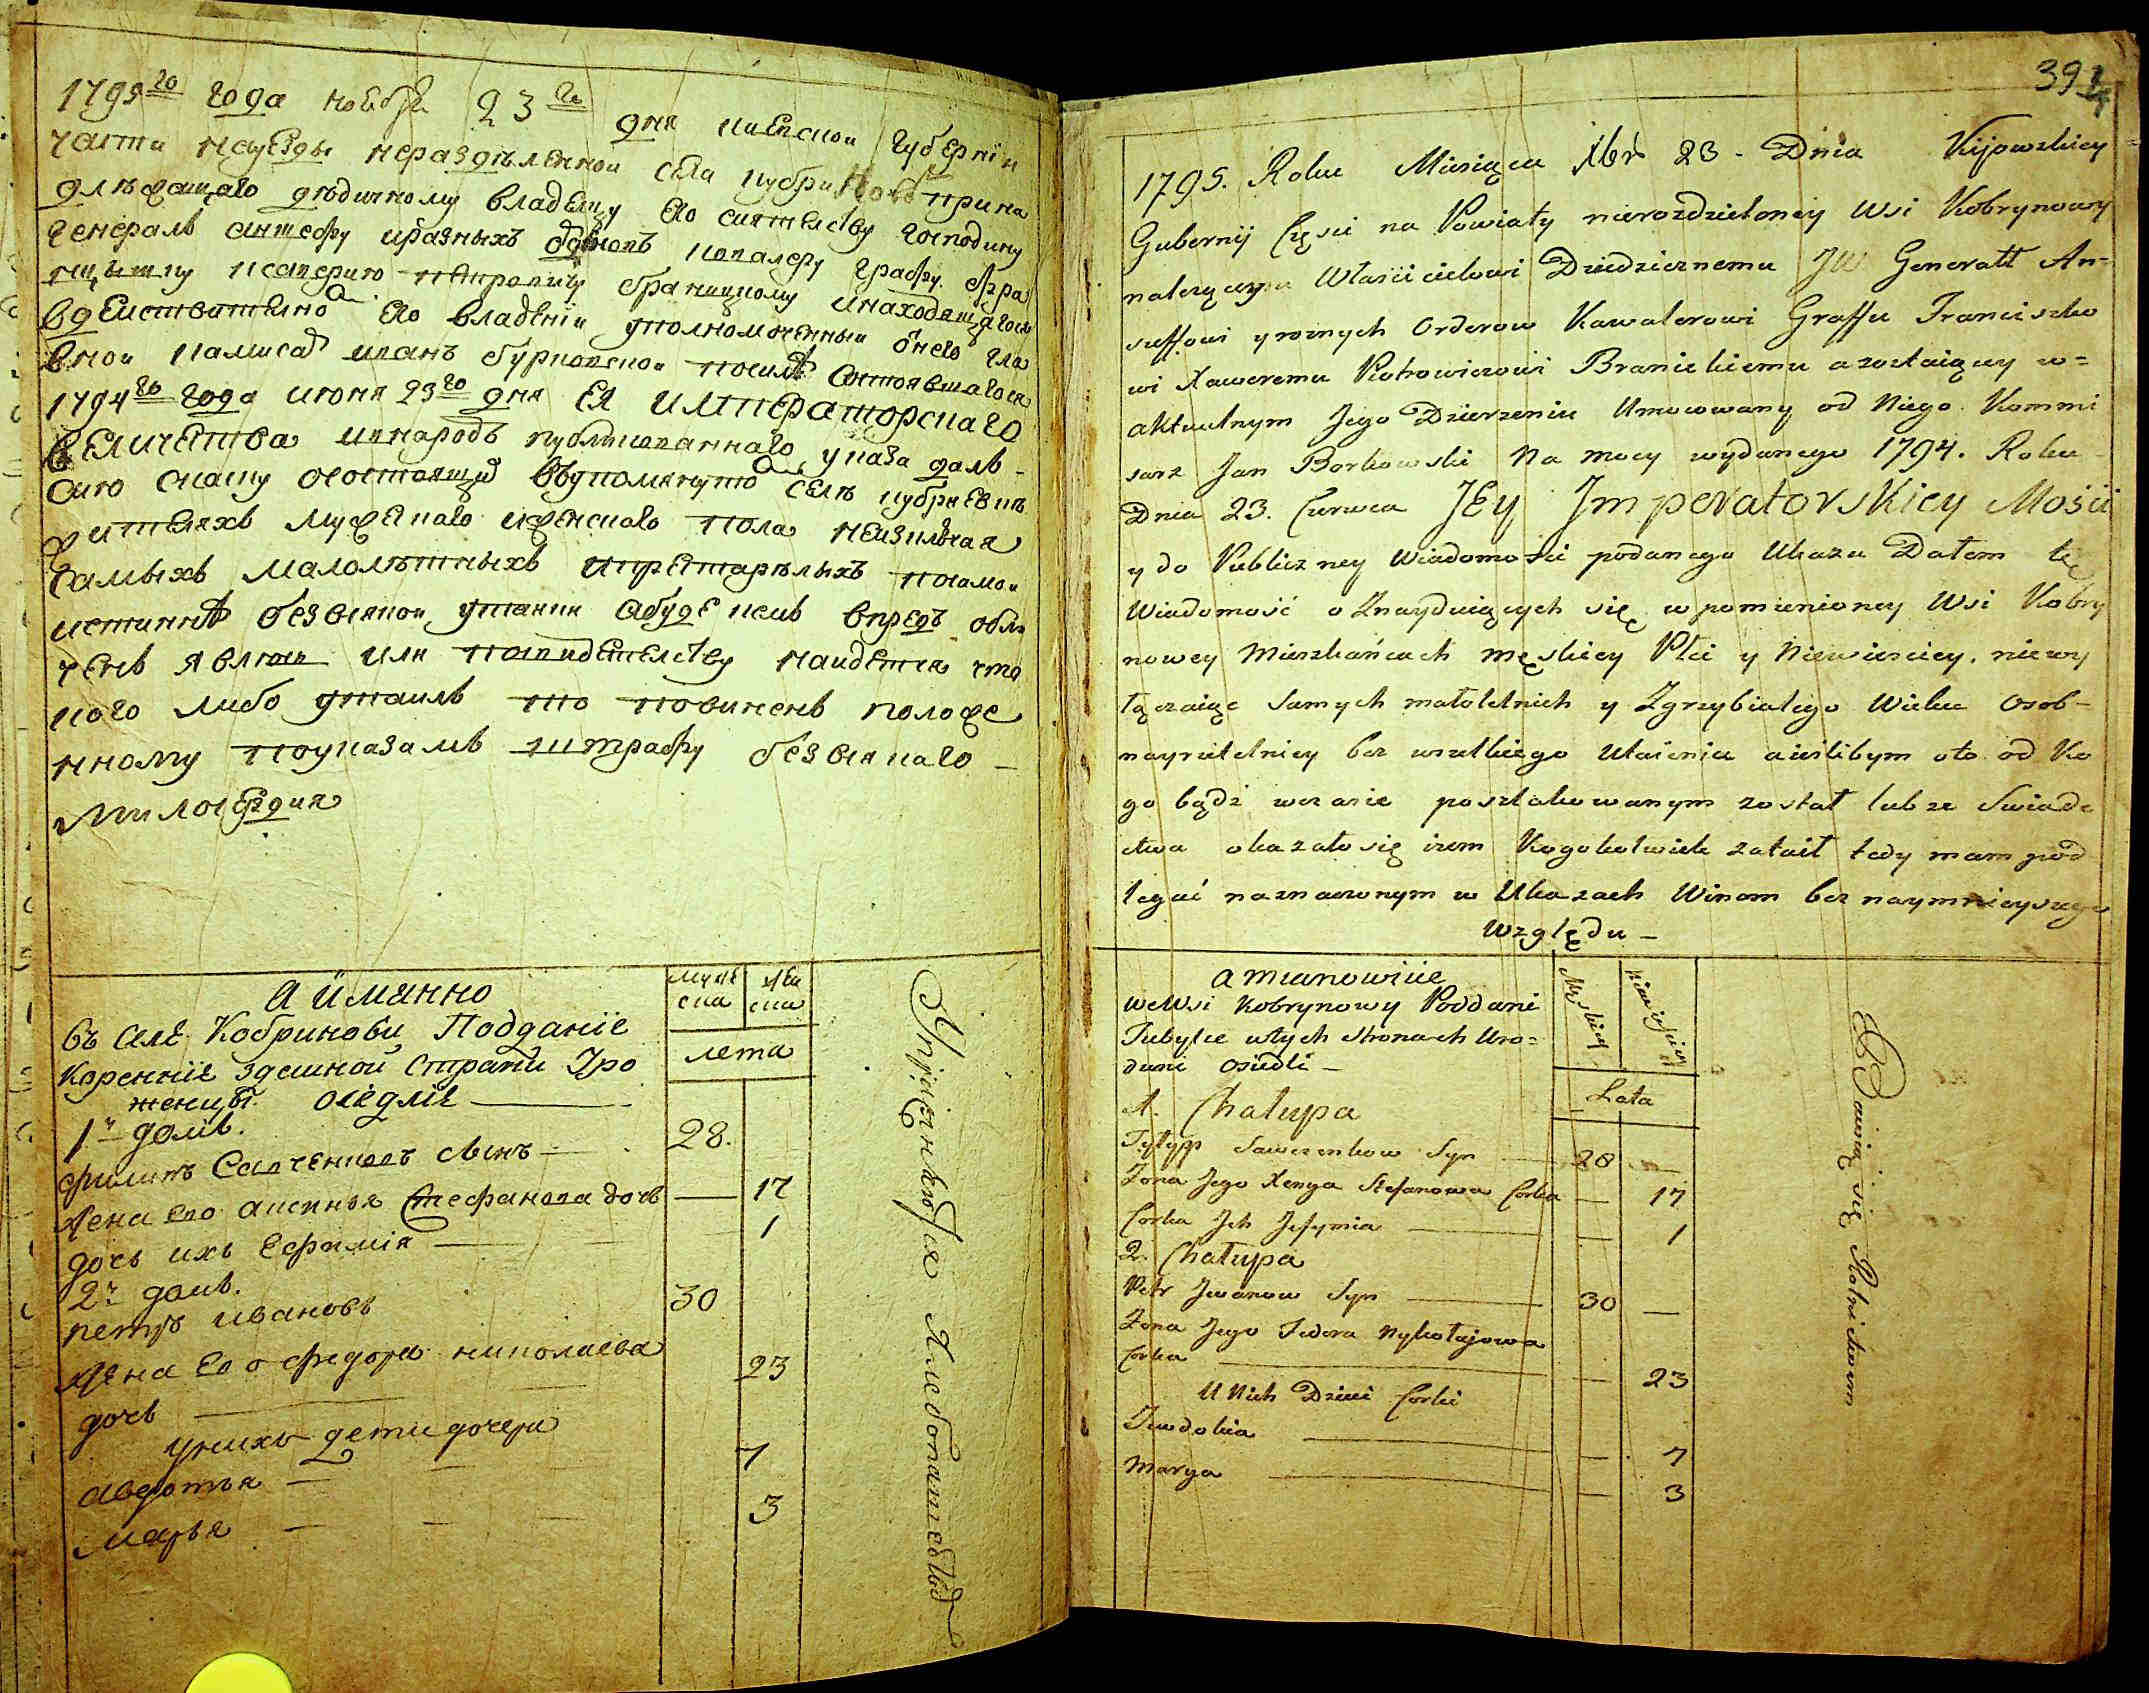 1795го года ноября 23го дня киевской губернїи
части науезды неразделенной села кубриново прина
длежащаго дедичному владелцу его сиятелству господину
генералъ аншефу иразныхъ орденовъ кавалеру графу фра
нцышку ксаверию петровичу браницкому инаходящагося
вдействително его владенїи уполномоченный онего гла
вной камисар иванъ бурковской посиле состоявшагося
1794го года июня 23го дня ЕЯ ИМПЕРАТОРСКАГО
ВЕЛИЧЕСТВА ивнародъ публикованнаго указа даю
сию скаску осостоящих ввупомянутом селе кубриевке
жителяхъ мужескаго иженскаго пола неизключая
самыхъ малолетныхъ ипрестарелыхъ посамои
истинне безвсякой утайки абуде кемъ впредь обли
ченъ явлюсь или посвидетелству найдется что
кого либо утаилъ то повиненъ положе
нному поуказамъ штрафу безвсякаго
милосердия
аимянно
въ селе Кобринови Подданїе
Кореннїе здешной Страни Уро
женци оседлїе
муже
ска
жен
ска
лета
1й домъ.
филипъ Савченковъ сынъ 28.
жена его аксинья Стефанова дочь 17
дочь ихъ Ефимїя 1
2й домъ.
петръ ивановъ 30
жена его федора николаева
дочь 23
унихъ дети дочери
авдотья 7
марья 3
39
1795. Roku Miesiąca Xbra 23. Dnia Kijowskiey
Gubernij Części na Powiaty nierozdzieloney Wsi Kobrynowy
należącey Własścicielowi Dziedzicznemu JW Generałł An=
szeffowi y roznych Orderow Kawalerowi Graffu Franciszko
wi Xaweremu Piotrowiczowi Branickiemu a zostaiący w=
aktualnym Jego Dzierżeniu Umocowany od Niego Kommi
sarz Jan Borkowski Na mocy wydanego 1794. Roku
Dnia 23. Czerwca JEy Imperatorskiey Mośći
y do Publiczney Wiadomośći podanego Ukazu Datem tę
Wiadomość o Znayduiących się w pomienioney Wsi Kobry
nowey Mieszkańcach męskiey Płci y Niewiesciey. niewy
łączaiąc Samych małoletnich y Zgrzybiałego Wieku Osob=
nayrzetelniey bez wszelkiego Utaienia a ieslibym oto od Ko
go bądź wczasie poszlakowanym został lub ze Swiade
ctwa okazało się iżem Kogokolwiek zataił tedy mam pod
legać naznaczonym w Ukazach Winom bez naymnieyszego
Względu
a mianowićie
we Wsi Kobrynowy Poddani
Tubylce wtych Stronach Uro=
dzeni Osiedli
Męskiey
Niewiesciey
Lata
1. Chałupa
Fylypp Sawczenkow Syn 28
Zona Jego Xenya Stefanowa Corka 17
Corka Jch Jefymia 1
2. Chałupa
Petr Jwanow Syn 30
Zona Jego Fedora Nykołajowa
Corka 23
U Nich Dzieci Corki
Jewdokia 7
Marya 3
Bawią się Rolnictwem